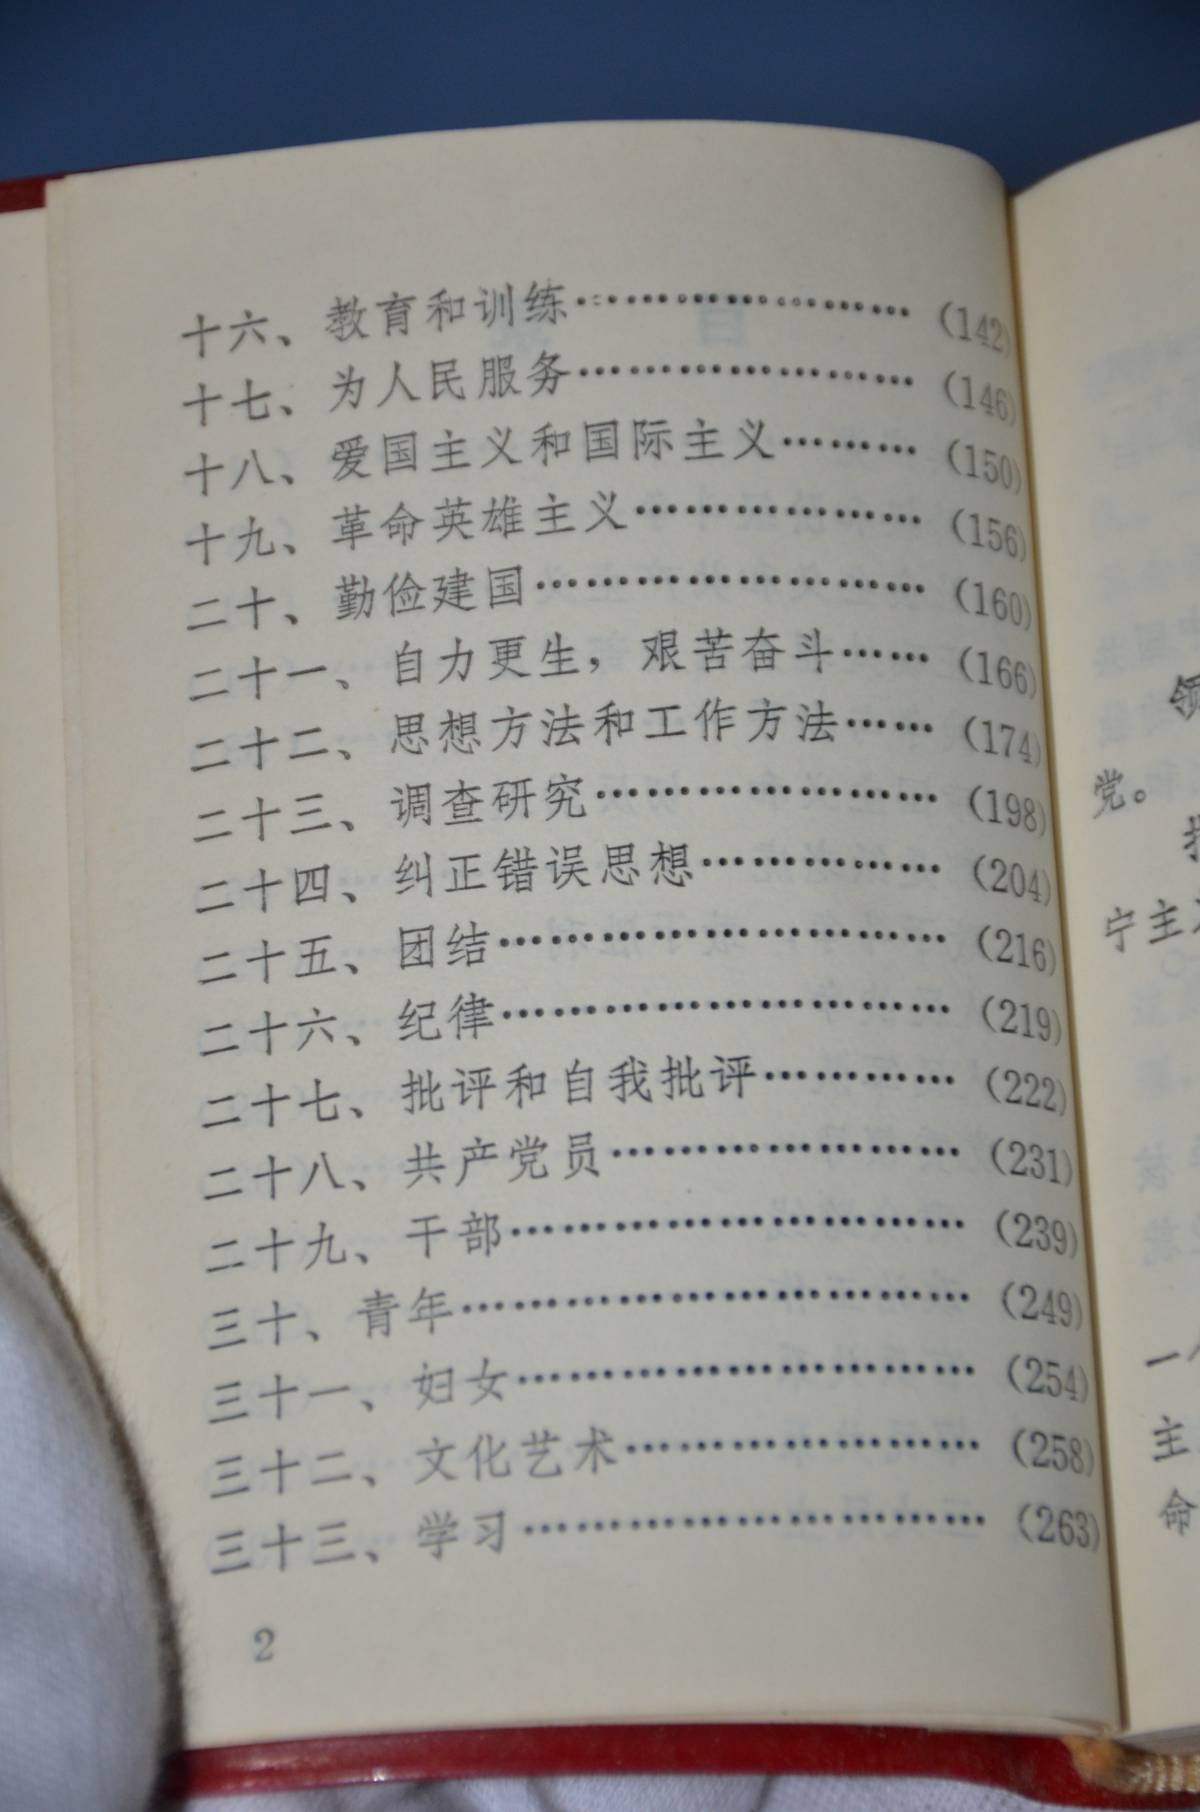 十六、教育和训练……………………(142)
十七、为人民服务……………………(146)
十八、爱国主义和国际主义………(150)
十九、革命英雄主义………………(156)
二十、勤俭建国……………………(160)
二十一、自力更生，艰苦奋斗……(166)
二十二、思想方法和工作方法……(174)
二十三、调查研究…………………(198)
二十四、纠正错误思想……………(204)
二十五、团结………………………(216)
二十六、纪律………………………(219)
二十七、批评和自我批评…………(222)
二十八、共产党员…………………(231)
二十九、干部………………………(239)
三十、青年…………………………(249)
三十一、妇女………………………(254)
三十二、文化艺术…………………(258)
三十三、学习………………………(263)
2
领
党。
宁主义
一个
主
命